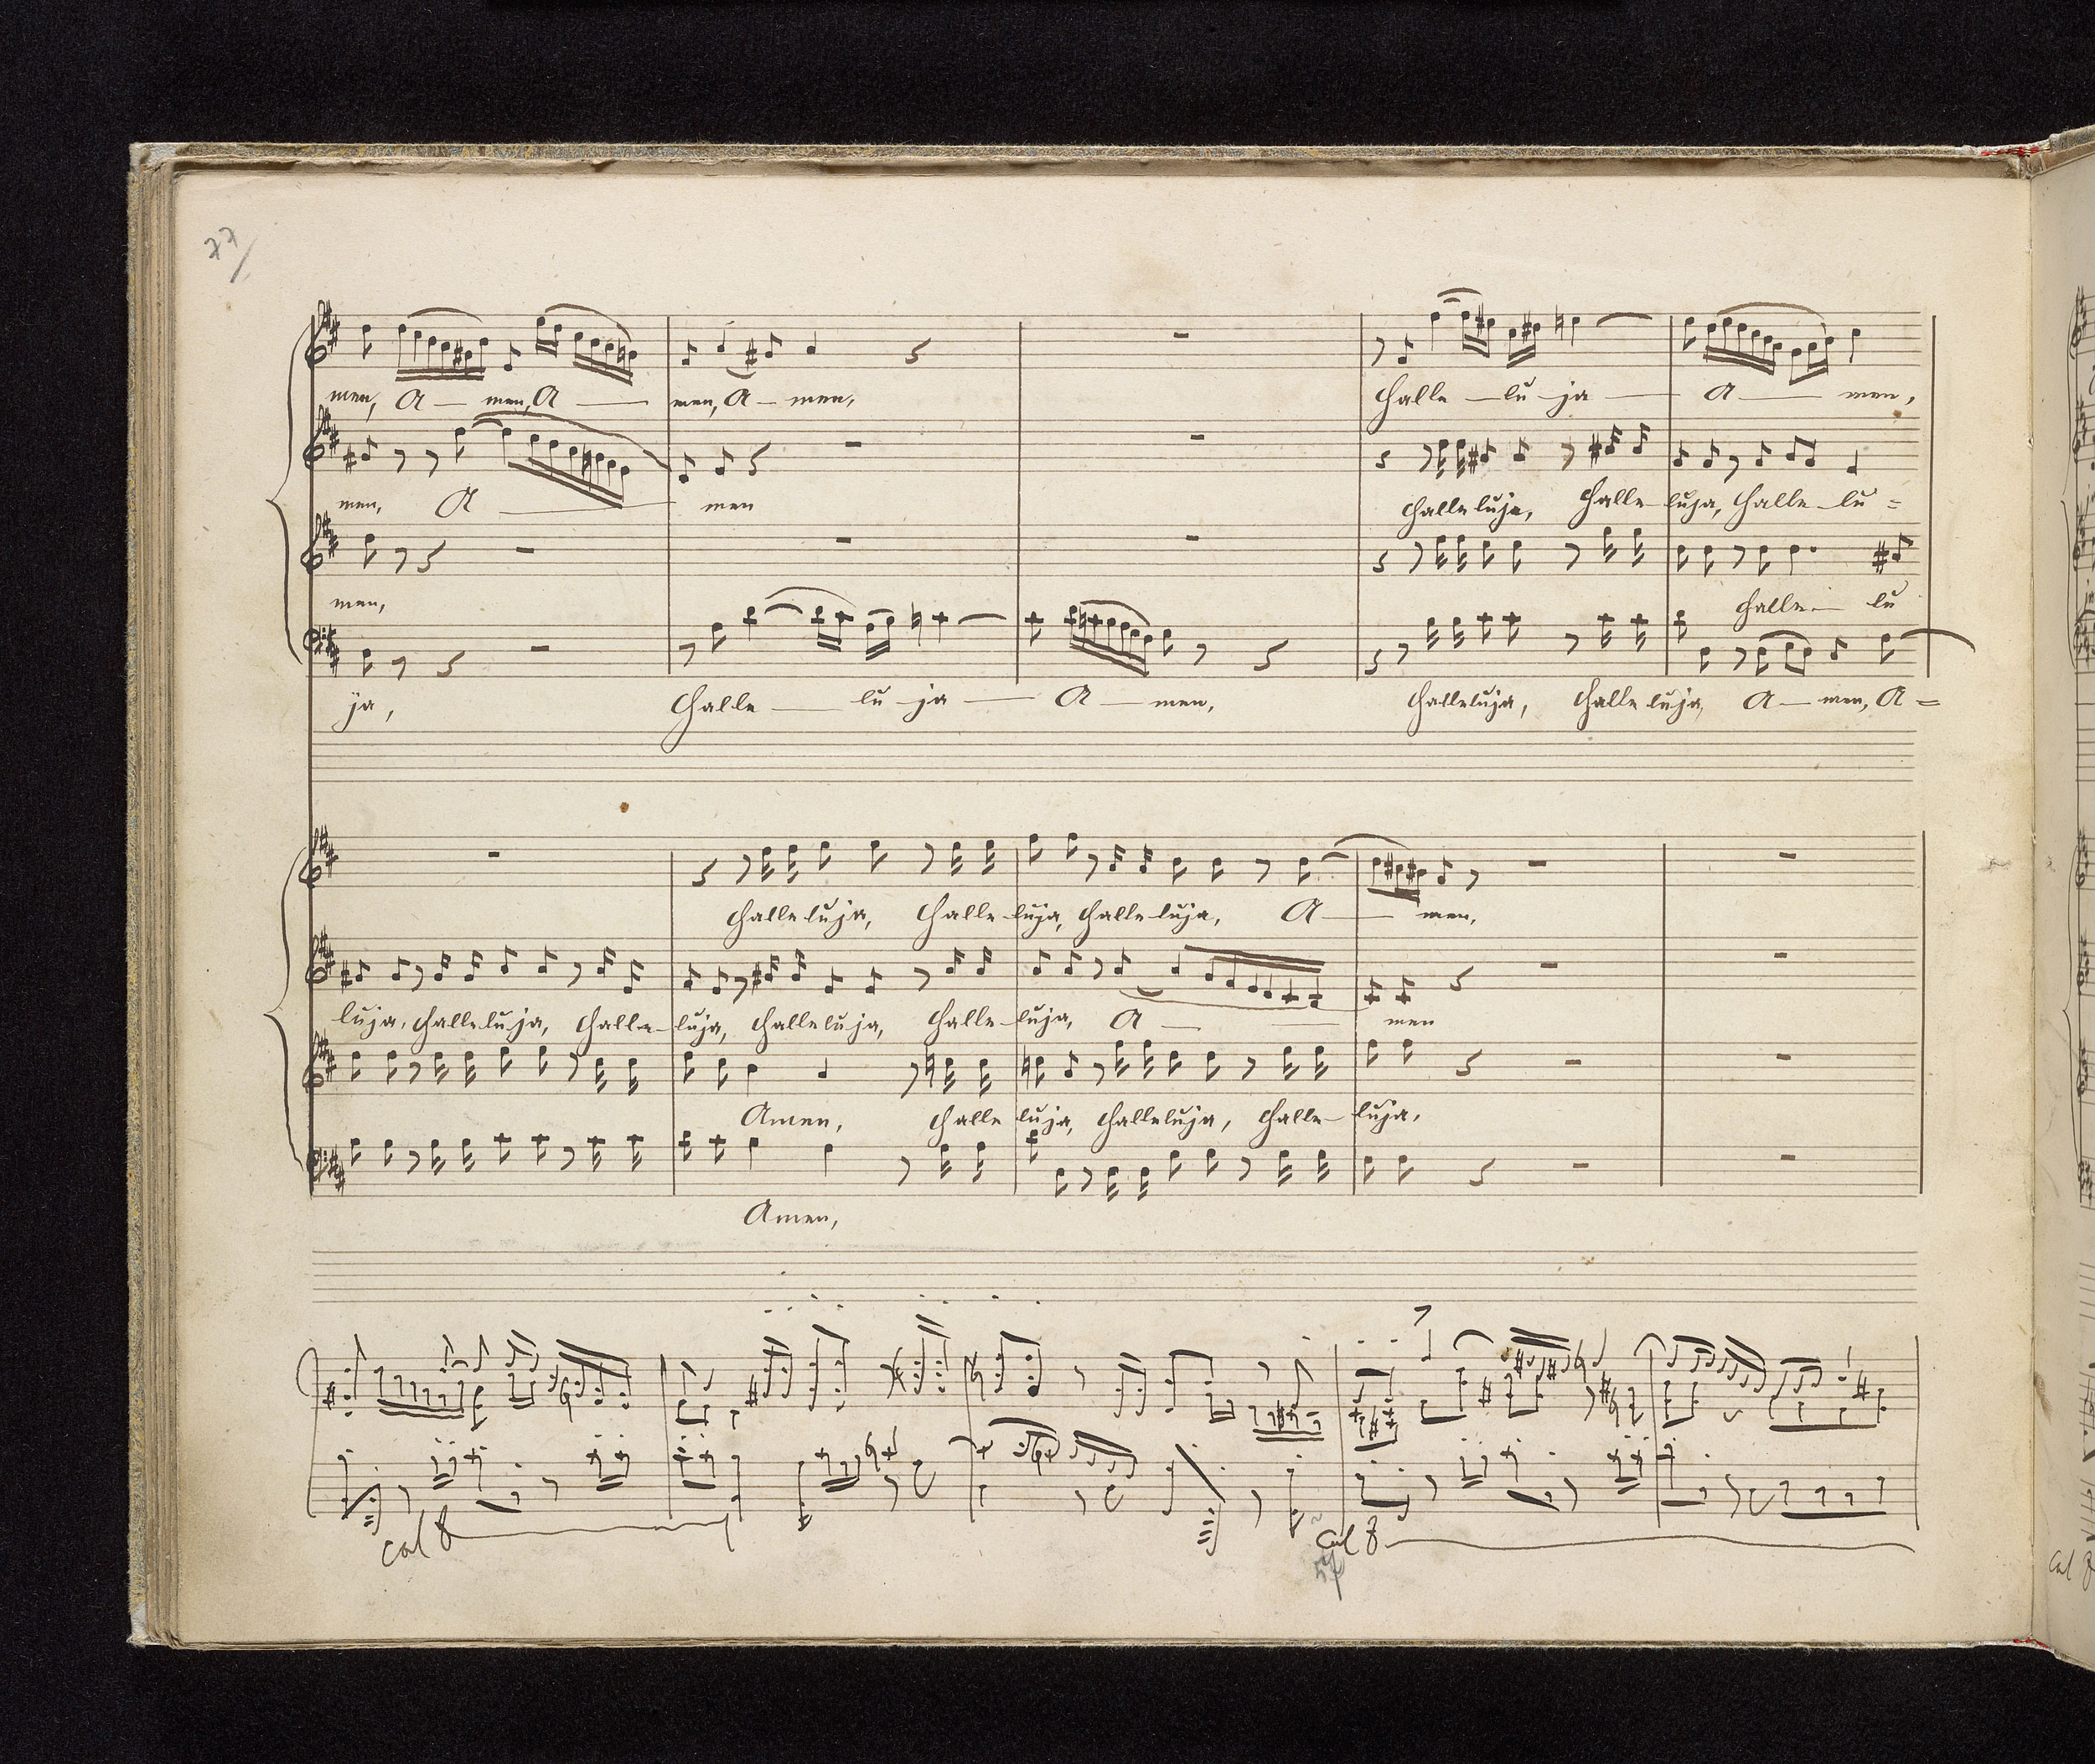 77/
men, A — men, A — men, A — men, Halle — lu — ja — A — men,
men, A — men Halleluja, Halle — luja, Halle — lu =
men, Halle — lu
ja, Halle — lu — ja — A — men, Halleluja, Halleluja, A — men, A =
Halleluja, Halle — luja, Halleluja, A — men,
luja, Halleluja, Halle — luja, Halleluja, Halle — luja, A — men
Amen, Halle luja, Halleluja, Halle — luja,
Amen,
col 8 Col 8